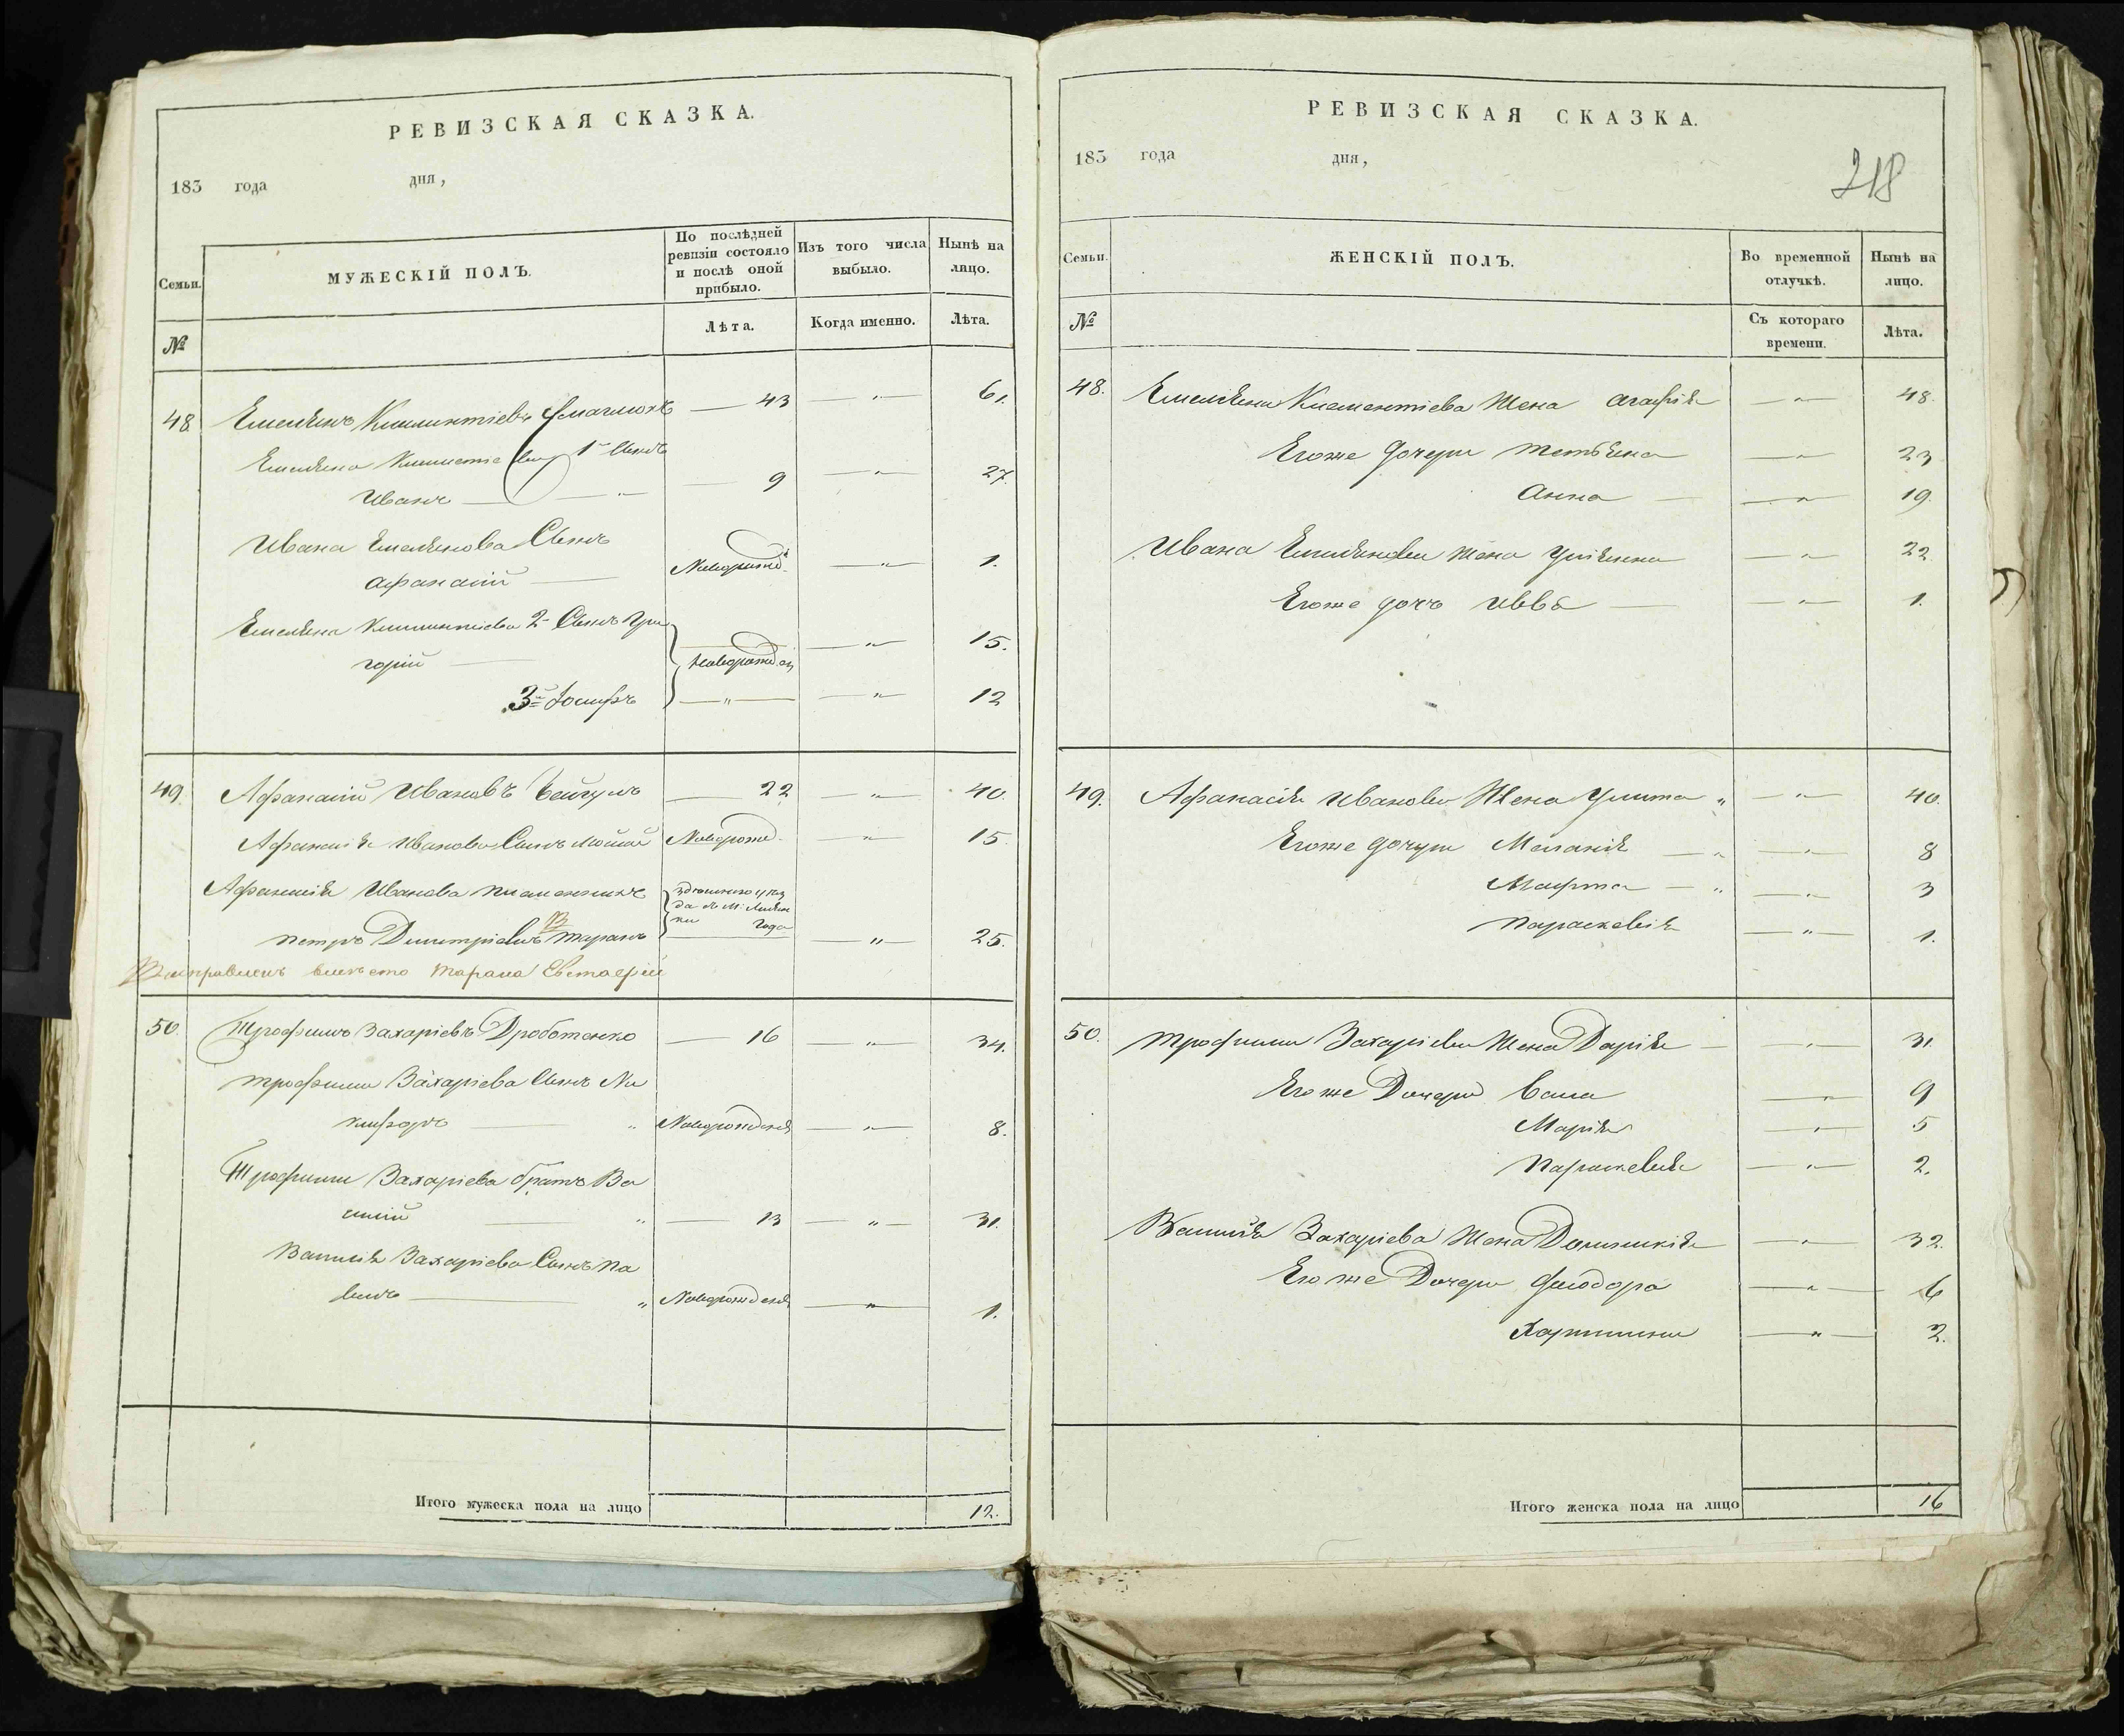 РЕВИЗСКАЯ СКАЗКА.
183 года дня,
Семьи.
МУЖЕСКІЙ ПОЛЪ.
По послѣдней ревизіи состояло и послѣ оной прибыло.
Изъ того числа выбыло.
Нынѣ на лицо.
№
Лѣта.
Когда именно.
Лѣта.
48. Емельянъ Климентіевъ — 43 — " — 61.
Емельяна Климентіева 1й Сынъ
Иванъ — " — 9 — " — 27.
Ивана Емельянова Сынъ
Афанасій — Новорожд. — " — 1.
Емельяна Климентіева 2й Сынъ Гри
горій — новорожден — " — 15.
3й Іосифъ — " — — " — 12
49. Афанасій Ивановъ — 22 — " — 40.
Афанасія Иванова Сынъ Мойсей Новорожд. — " — 15
Афанасія Иванова племенникъ
Петръ Димитріевъ Таранъ — " — 25.
вмѣсто Тарана Евстафій
50. Трофимъ Захаріевъ Дроботенко — 16 — " — 34.
Трофима Захаріева Сынъ Ни
кифоръ — " Новорожденъ — " — 8.
Трофима Захаріева братъ Ва
силій — " — 13 — " — 31.
Василія Захаріева Сынъ Па
велъ — " Новорожденъ — " — 1.
Итого мужеска пола на лицо 12.
РЕВИЗСКАЯ СКАЗКА.
183 года дня,
218
Семьи.
ЖЕНСКІЙ ПОЛЪ.
Во временной отлучкѣ.
Нынѣ на лицо.
№
Съ котораго времени.
Лѣта.
48. Емельяна Климентіева Жена Агафія — " — 48.
Егоже дочери Тетьяна — " — 23
Анна — — " — 19.
Ивана Емельянова Жена Ульянна — " — 22
Егоже дочь — " — 1.
49. Афанасія Иванова Жена Улита " — " — 40.
Егоже дочери Меланія — " — " — 8
Марфа — " — " — 3
Параскевія — " — 1.
50. Трофима Захаріева Жена Дарія — — " — 31.
Егоже Дочери — " — 9
Марія — " — 5
Параскевія — " — 2.
Василія Захаріева Жена Домникія — " — 32.
Егоже Дочери Феодора — " — 6
Харитина — " — 2.
Итого женска пола на лицо 16